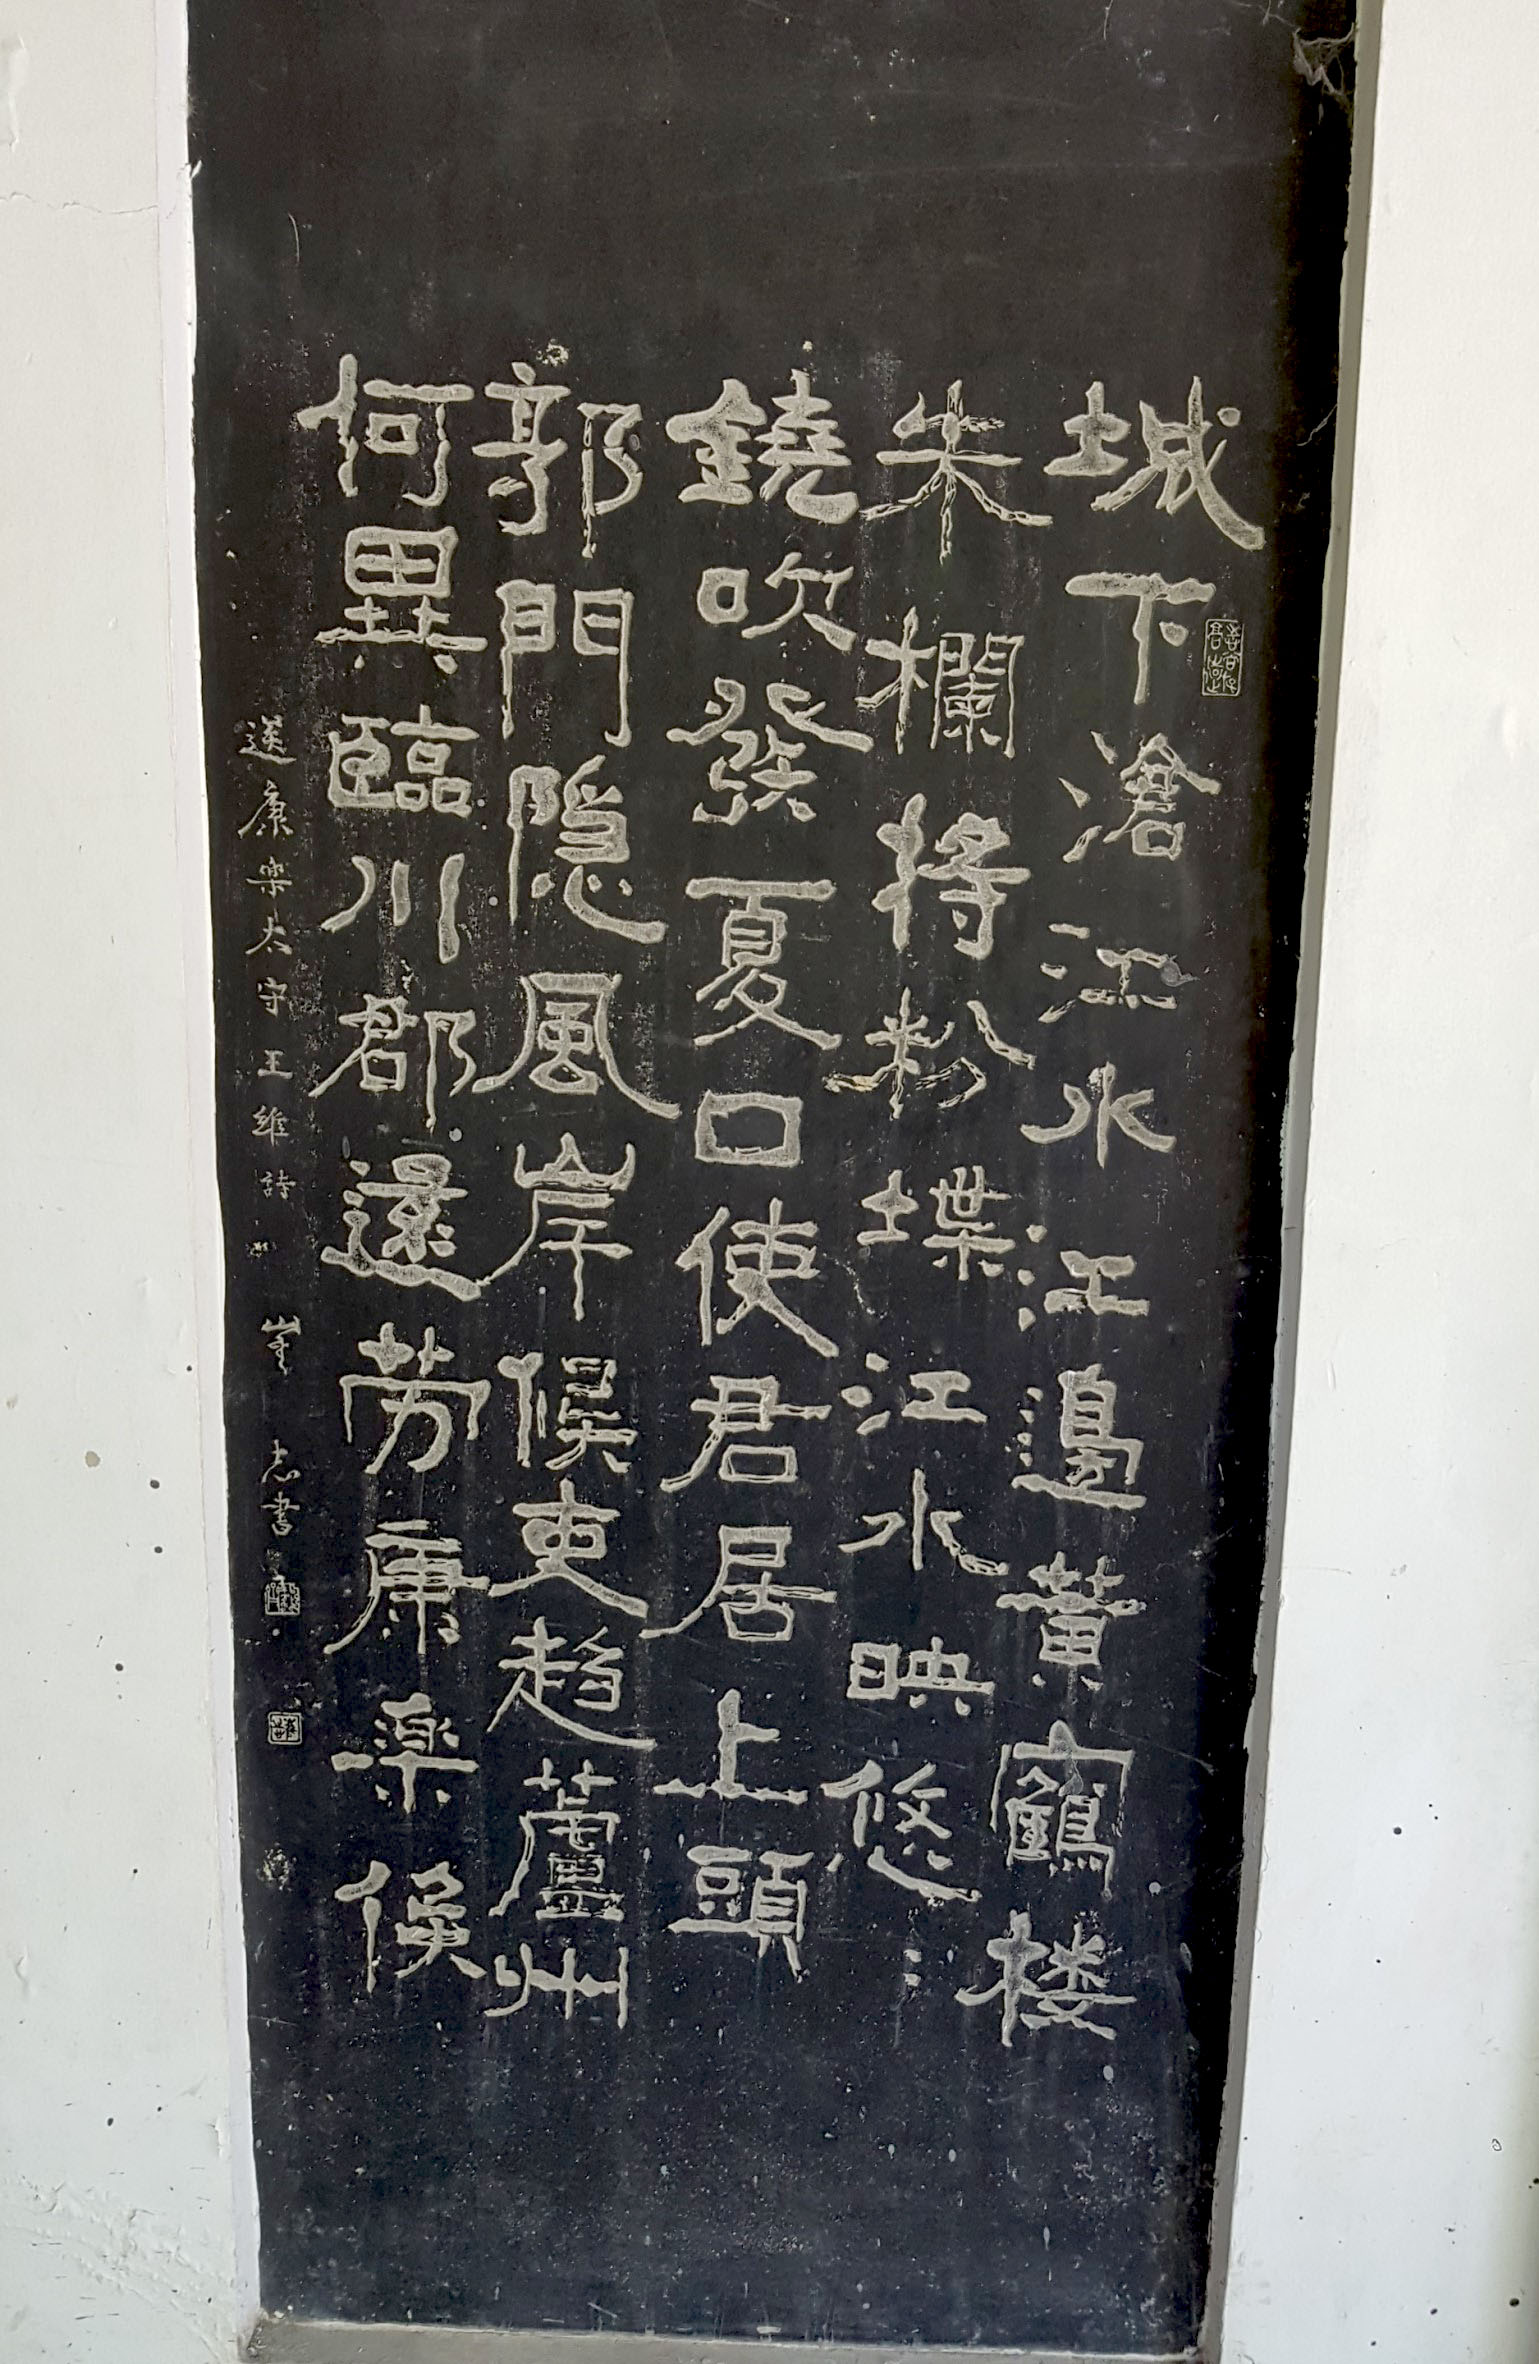 城下滄江水江邊黄鶴楼
朱欄将粉堞江水映悠〻
鐃吹發夏口使君居上頭
郭門隐風岸候吏趋蘆州
何異臨川郡還劳康楽侯
送康樂太守 王維詩 崔志書